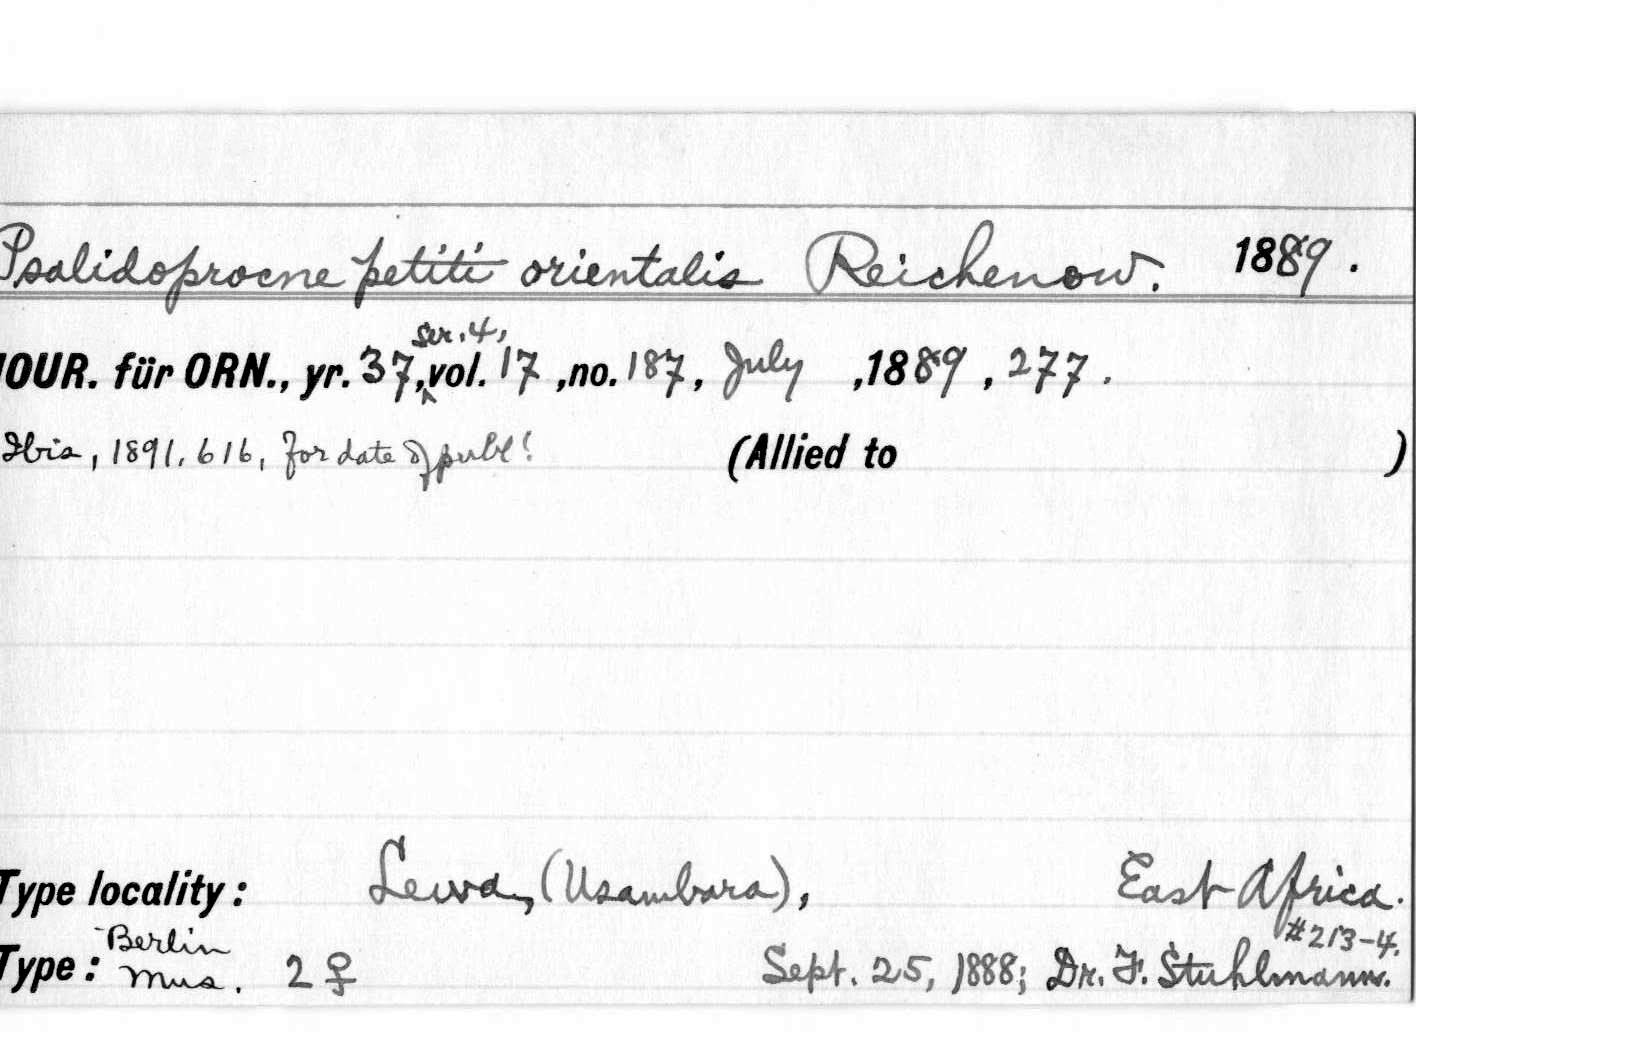 Psalidoprocne petiti orientalis Reichenow. 1889.
JOUR. für ORN., yr. 37, ser. 4, vol. 17, no. 187, July, 1889, 277.
Ibis, 1891, 616, for date of publ! (Allied to )
Type locality: Lewa, (Usambara), East Africa.
#213-4.
Type: Berlin Mus. 2 ♀ Sept. 25, 1888; Dr. F. Stuhlmann.